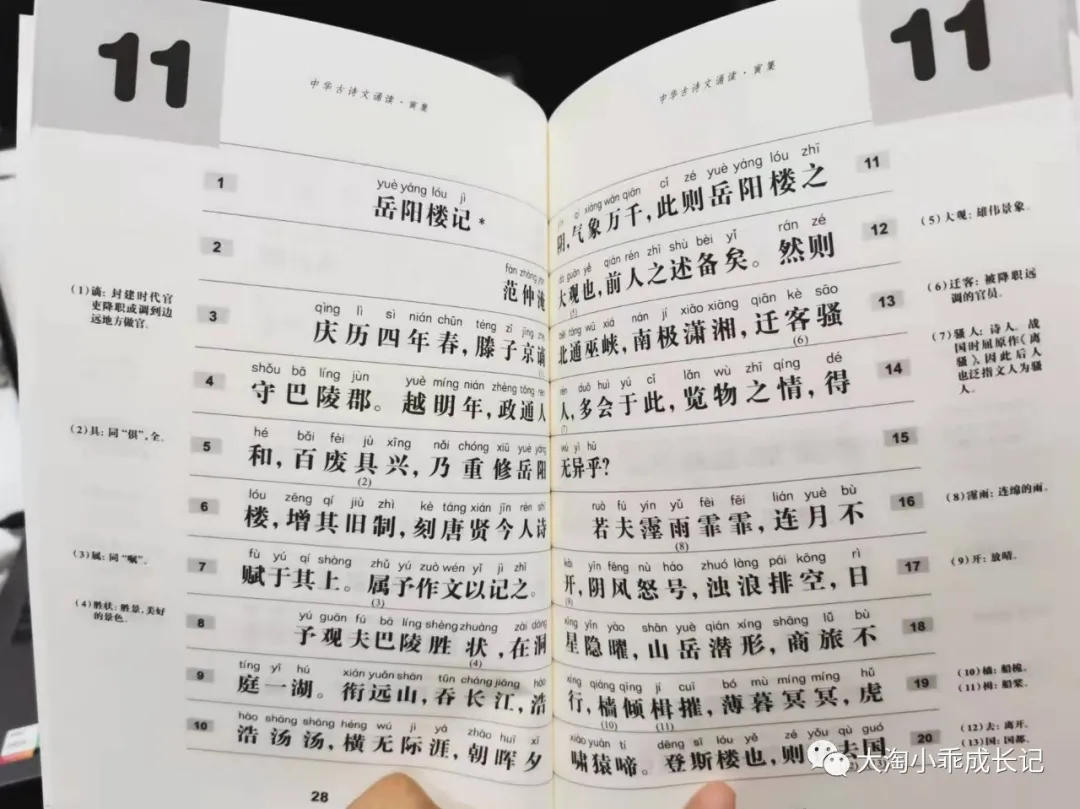 11
中华古诗文诵读·寅集
1
yuè yáng lóu jì
岳阳楼记*
2
fàn zhòng yān
范仲淹
(1)谪：封建时代官
吏降职或调到边
远地方做官。
3
qìng lì sì nián chūn téng zǐ jīng zhé
庆历四年春，滕子京谪
4
shǒu bā líng jùn yuè míng nián zhèng tōng rén
守巴陵郡。越明年，政通人
(2)具：同“俱”，全。
5
hé bǎi fèi jù xīng nǎi chóng xiū yuè yáng
和，百废具兴，乃重修岳阳
(2)
6
lóu zēng qí jiù zhì kè táng xián jīn rén shī
楼，增其旧制，刻唐贤今人诗
(3)属：同“嘱”。
7
fù yú qí shàng zhǔ yú zuò wén yǐ jì zhī
赋于其上。属予作文以记之。
(3)
(4)胜状：胜景，美好
的景色。
8
yú guān fú bā líng shèng zhuàng zài dòng
予观夫巴陵胜状，在洞
(4)
9
tíng yī hú xián yuǎn shān tūn cháng jiāng hào
庭一湖。衔远山，吞长江，浩
10
hào shāng shāng héng wú jì yá zhāo huī xī
浩汤汤，横无际涯，朝晖夕
28
11
中华古诗文诵读·寅集
11
yīn qì xiàng wàn qiān cǐ zé yuè yáng lóu zhī
阴，气象万千，此则岳阳楼之
12
dà guān yě qián rén zhī shù bèi yǐ rán zé
大观也，前人之述备矣。然则
(5)
(5)大观：雄伟景象。
13
běi tōng wū xiá nán jí xiāo xiāng qiān kè sāo
北通巫峡，南极潇湘，迁客骚
(6)
(6)迁客：被降职远
调的官员。
14
rén duō huì yú cǐ lǎn wù zhī qíng dé
人，多会于此，览物之情，得
(7)
(7)骚人：诗人。战
国时屈原作《离
骚》，因此后人
也泛指文人为骚
人。
15
wú yì hū
无异乎？
16
ruò fú yín yǔ fēi fēi lián yuè bù
若夫霪雨霏霏，连月不
(8)
(8)霪雨：连绵的雨。
17
kāi yīn fēng nù háo zhuó làng pái kōng rì
开，阴风怒号，浊浪排空，日
(9)
(9)开：放晴。
18
xīng yǐn yào shān yuè qián xíng shāng lǚ bù
星隐曜，山岳潜形，商旅不
19
xíng qiáng qīng jí cuī bó mù míng míng hǔ
行，樯倾楫摧，薄暮冥冥，虎
(10) (11)
(10)樯：船桅。
(11)楫：船桨。
20
xiào yuán tí dēng sī lóu yě zé yǒu qù guó
啸猿啼。登斯楼也，则有去国
(12)去：离开。
(13)国：国都。
大淘小乖成长记